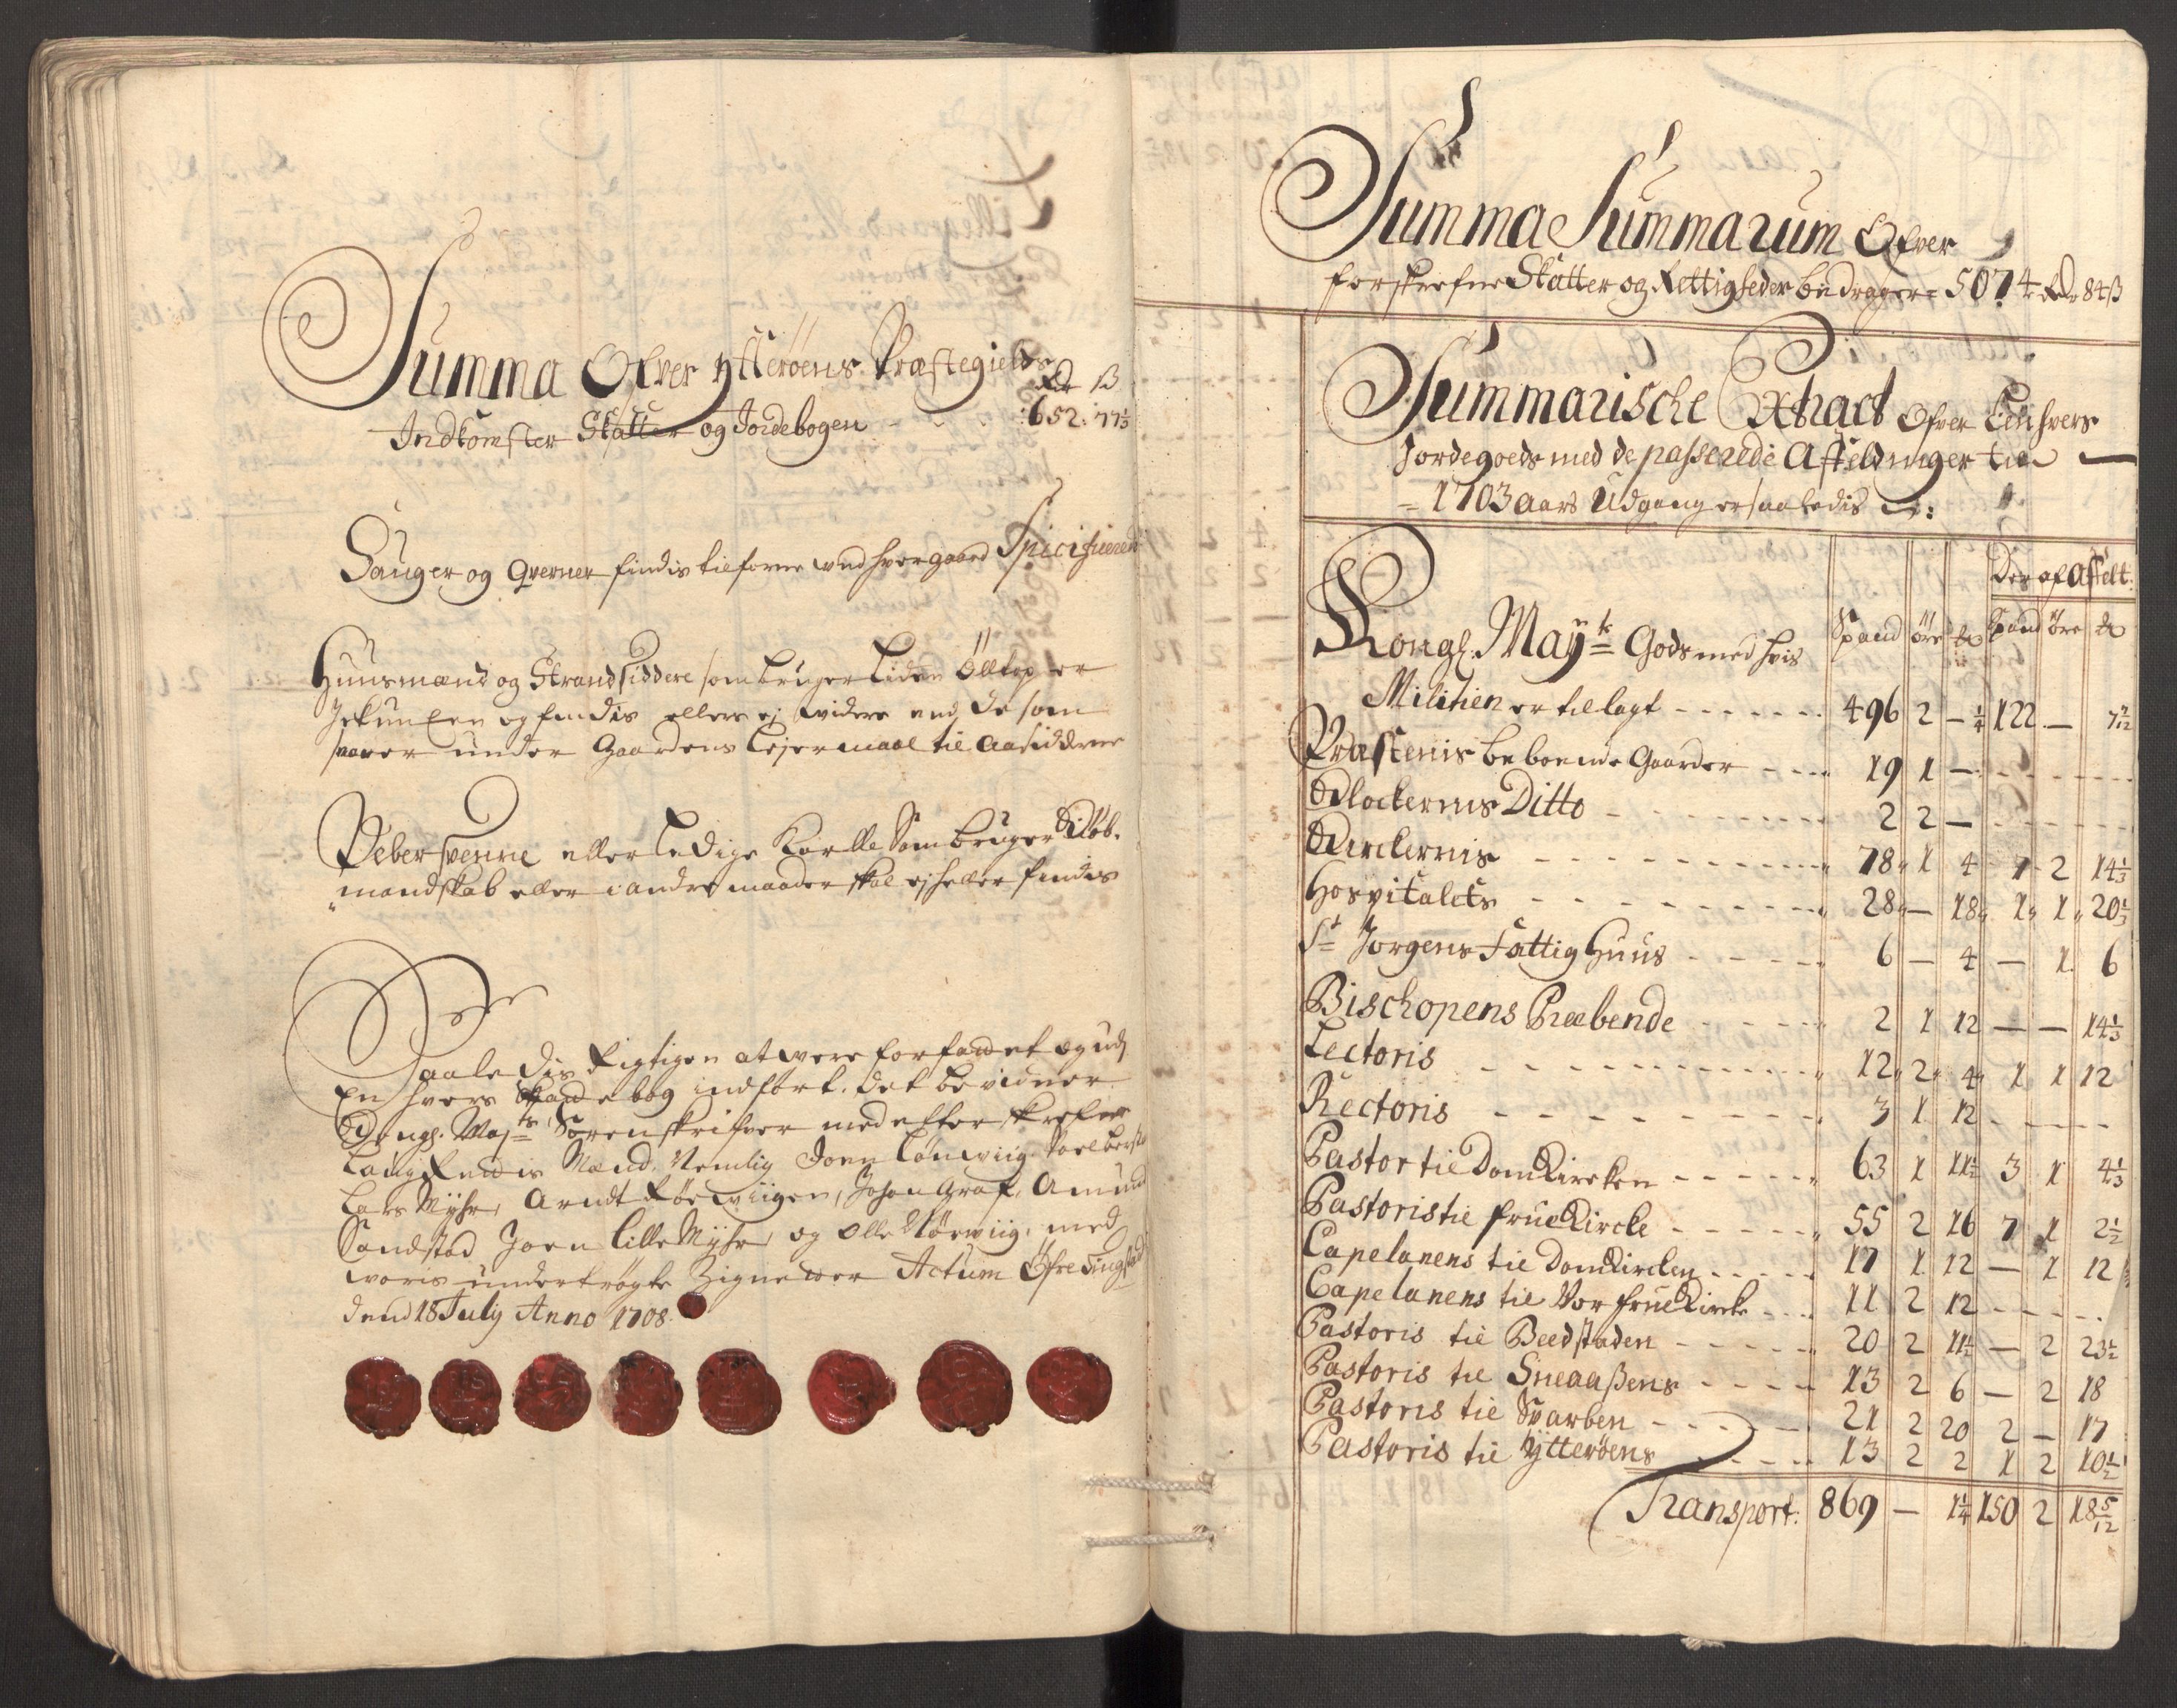 Summa Ofver Ytterøens Præstegields
Rdr ß
Indkomster Skatter og Jordebogen - - - 652: 77⅓
Sauger og Qverner findis tilforne ved hver gaard Specificeret
Huusmænd og Strandsiddere som bruger liden
og findis ellers ej widere end de som
svarer under Gaardens Lejermaal til Aasiddderne
Pebersvenne eller ledige Karlle Som bruger Kiøb-
mandskab eller i andre maader skal ej heller findis
Saaledis Rigtigen at være forfattet og udj
En hvers bog indført. Det bevidner
Kongl. Mayts Sorenskrifver med efterskrefne
Laugrettis Mænd. Nemlig Joen
Lars Myhr, Arndt Johan Graf, Amund
Sandstad Joen Lille Myhr, og Olle med
woris undertrøgte Zigneter Actum Øfre
dend 18 July Anno 1708.
Summa Summarum Ofver
forskrefne Skatter og Rettigheder bedrager = 5074 Rdr 84 ß
Summarische Extract Ofver Een hvers
Jordegoeds med de passerede Affeldinger til
= 1703 Aars Udgang er saaledis :
Der af Affelt.
Spand øre Spand øre
Kongl. Mayts Gods med hvis
Militien er tillagt - - - - - - - 496 2 - ¼ 122 - 7 7/12
Præstenis beboende Gaarder - - - - 19 1 -
Klockernis Ditto - - - - - - 2 2 -
Kirckernis - - - - - - - - - 78 1 4 7 2 14⅓
Hospitalets - - - - - - - - - 28 - 18 1 1 20⅓
St Jorgens Fattig Huus - - - - - 6 - 4 - 1 6
Bischopens Præbende - - - - - 2 1 12 - - 14⅓
Lectoris - - - - - - - - - - 12 2 4 1 1 12
Rectoris - - - - - - - - - 3 1 12 - - - -
Pastor til Dom Kircken - - - - - 63 1 11½ 3 1 4⅓
Pastoris til frue Kircke - - - - - 55 2 16 7 1 2½
Capelanens til Dom Kircken - - - - 17 1 12 - 1 12
Capelanens til Vor frue Kircke - - - 11 2 12 - - - -
Pastoris til Beedstaden - - - - - 20 2 11½ - 2 23½
Pastoris til Sneaaßens - - - - 13 2 6 - 2 18
Pastoris til Sparben - - - - - 21 2 20 2 - 17
Pastoris til Ytterøens - - - - 13 2 2 1 2 10½
Transport: 869 - 1¼ 150 2 18 5/12